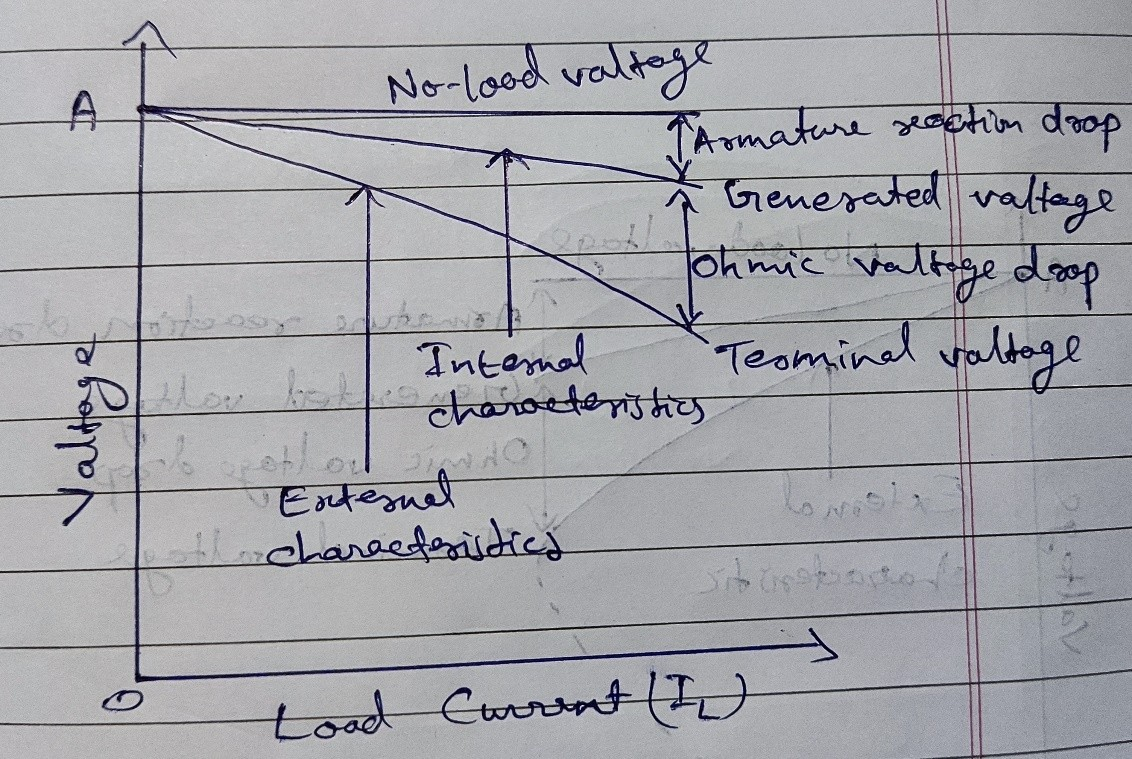 No-load valtage
A
Armature reaction drop
Generated valtage
Ohmic valtage drop
Terminal valtage
Internal
characteristics
Valtage
External
characteristics
O
Load Current (IL)